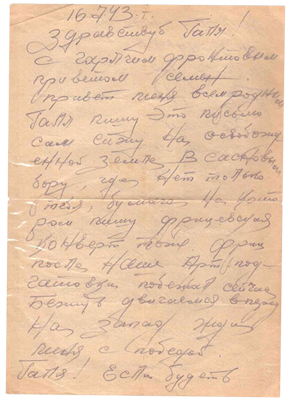 16743 г.
Здравствуй Галя!
с горячим фронтовым
приветом Семен.
привет меня всем родным
Галя пишу это письмо
сам сижу на освобожд
енной земле в сосновы
бору, где нет только
у меня, бумага на кото
ром пишу фрицевская
конверт тоже. Фриц
после нашей арт под
готовки побежал сейчас
Бежит двигаемся вперед
На запад жди
меня с победой.
Галя! Если будеть